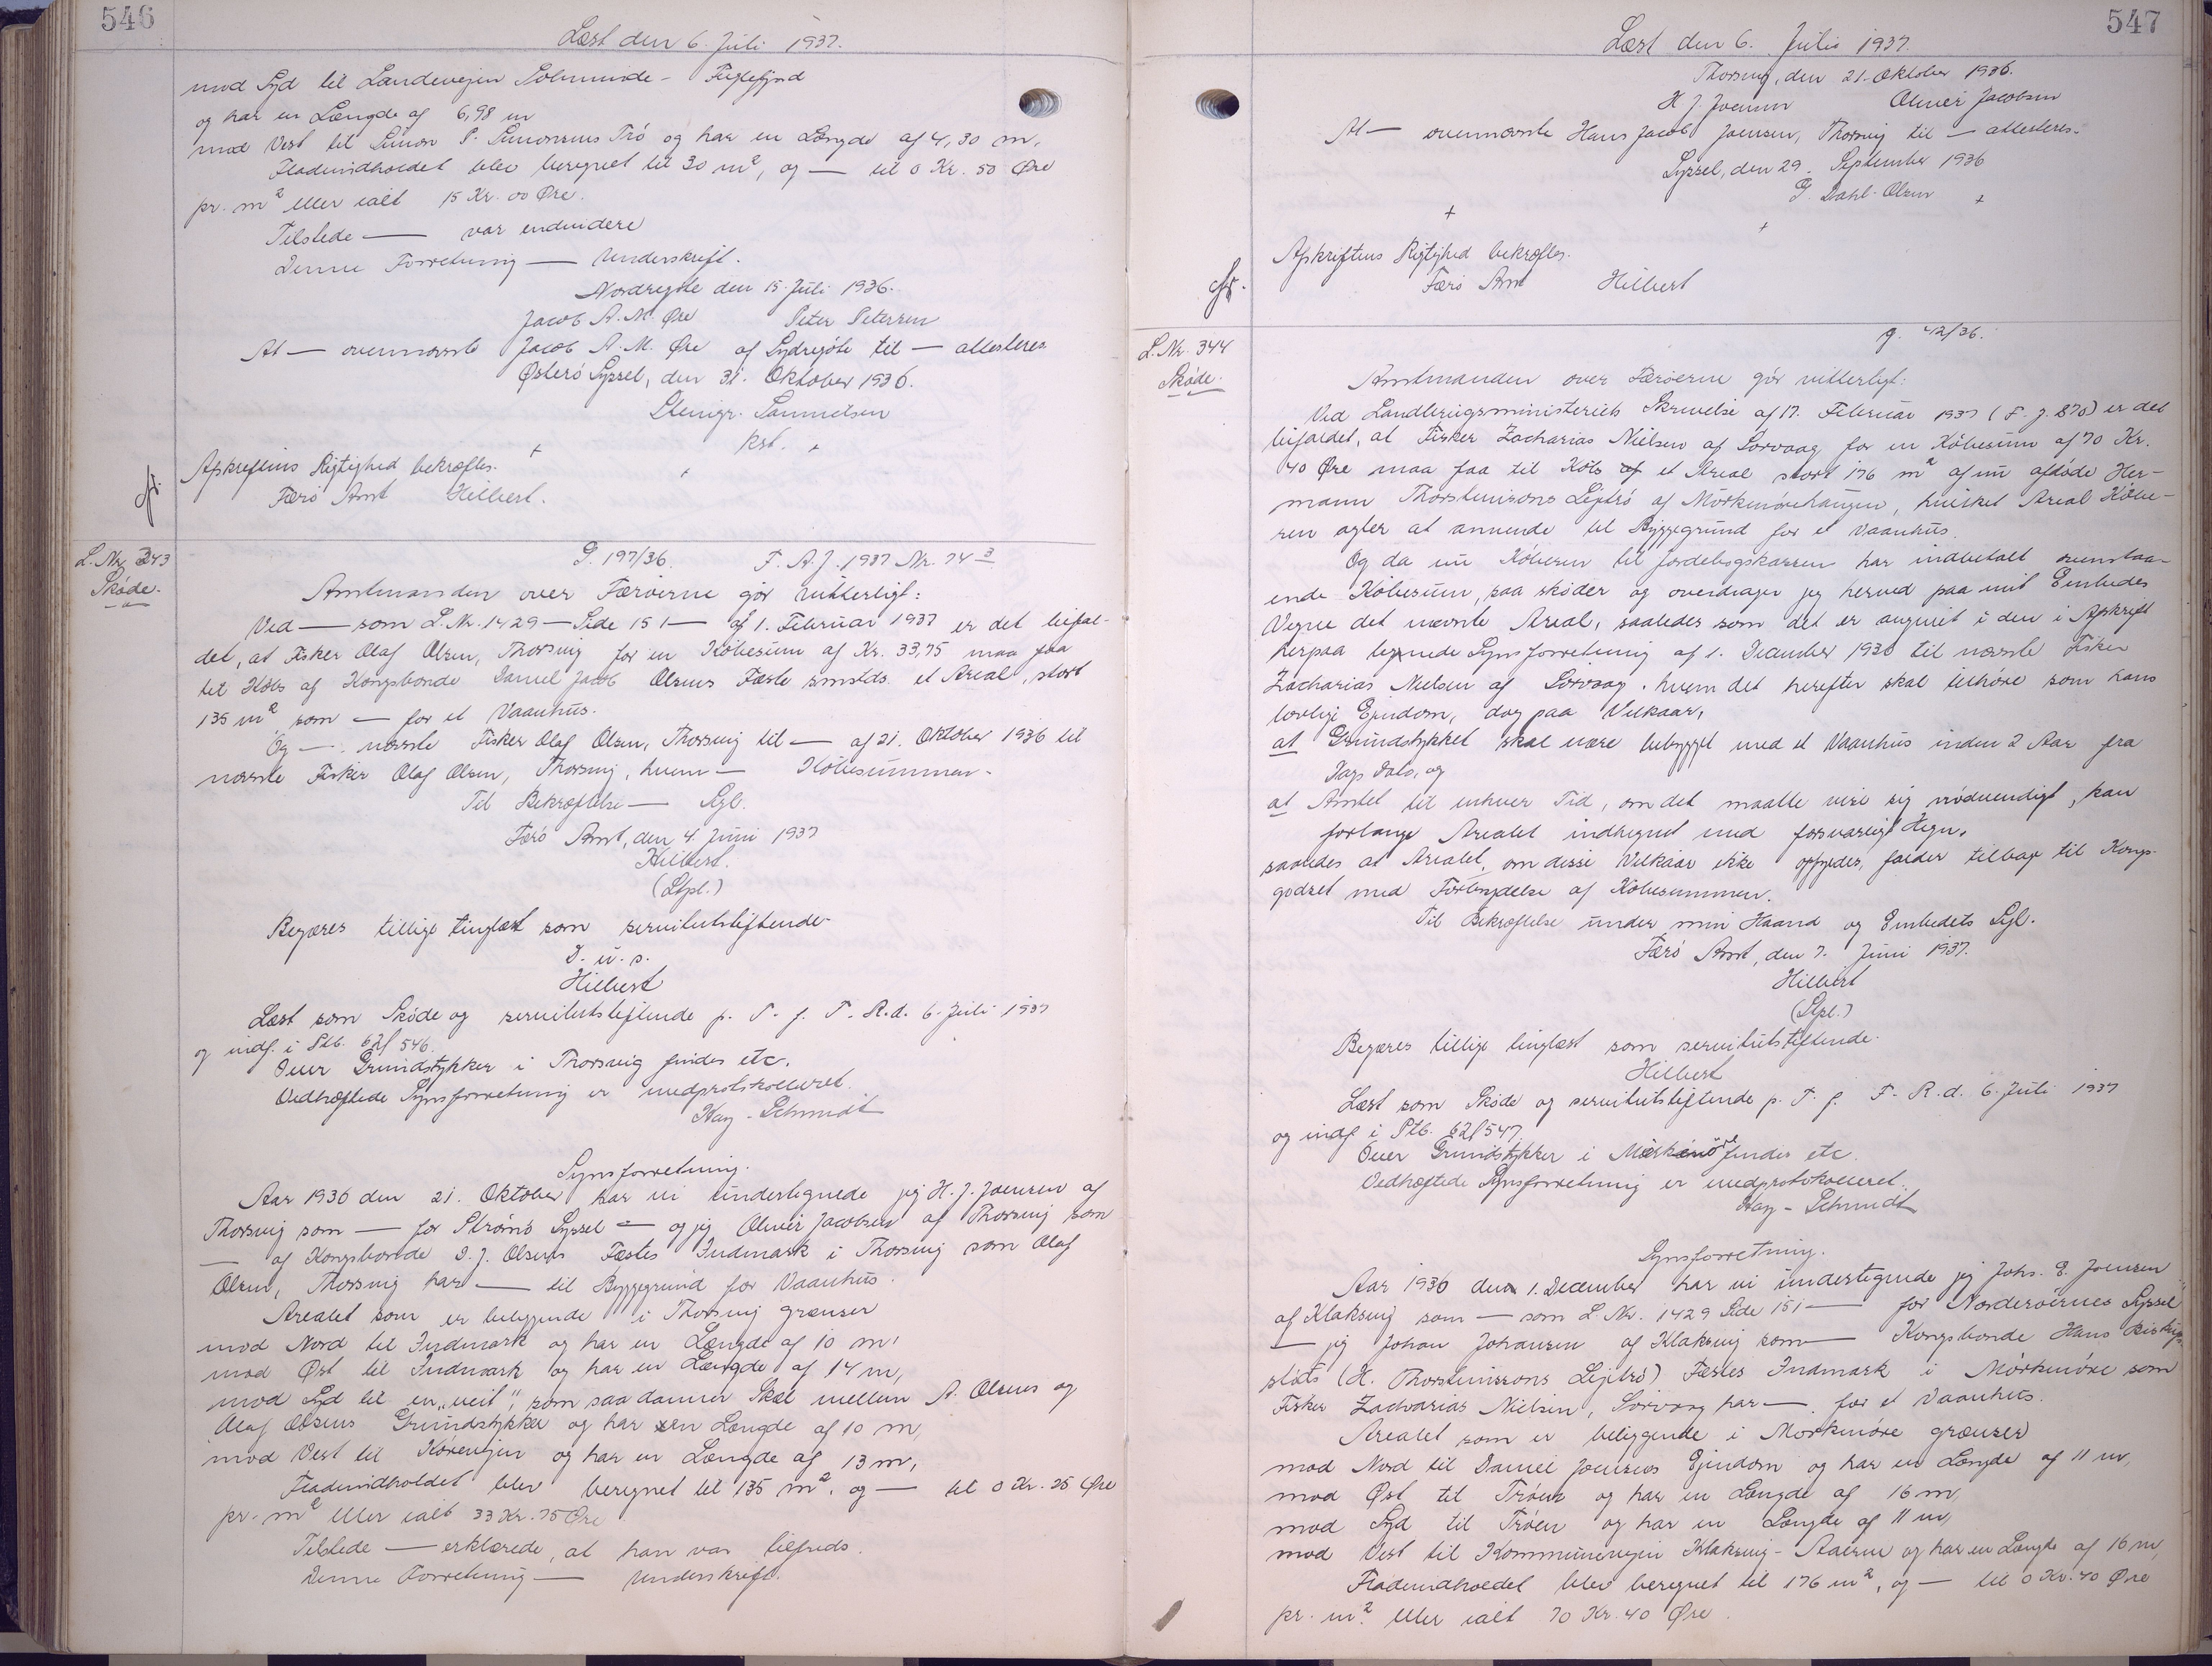 546
Læst den 6. Juli 1937.
mod Syd til Landevejen Solmunde - Fuglefjord
og har en Længde af 6,98 m
mod Vest til Simon P. Simonsens Trö og har en Længde af 4,30 m.
Fladeindholdet blev beregnet til 30 m², og — til 0 Kr. 50 Øre
pr. m² eller ialt 15 Kr. 00 Øre.
Tilstede — var endvidere
Denne Forretning — Underskrift.
Nordragöte den 15. Juli 1936.
Jacob A. M. Øre Peter Petersen
At — ovennævnte Jacob A. M. Øre af Sydregöte til — attesteres
Österö Syssel, den 31. Oktober 1936.
Steingr. Samuelsen
kst.
Afskriftens Rigtighed bekræftes.
Færö Amt Hilbert.
L. Nr. 343
Sköde.
G. 197/36. F. A. J. 1937 Nr. 74 - 3
Amtmanden over Færöerne gör vitterligt:
Ved — som L. Nr. 1429 — Side 151 — af 1. Februar 1937 er det bifal-
det, at Fisker Olaf Olsen, Thorsvig for en Köbesum af Kr. 33,75 maa faa
til Köbs af Kongsbonde Daniel Jacob Olsens Fæste smstds. et Areal, stort
135 m² som — for et Vaanhus.
Og — nævnte Fisker Olaf Olsen, Thorsvig til — af 21. Oktober 1936 til
nævnte Fisker Olaf Olsen, Thorsvig, hvem — Köbesummen.
Til Bekræftelse — Segl.
Færö Amt, den 4. Juni 1937
Hilbert.
(Stpl.)
Begæres tillige tinglæst som servitutstiftende
D. u. s.
Hilbert
Læst som Sköde og servitutstiftende p. T. f. F. R. d. 6. Juli 1937
og indf. i Ptb. 62/546.
Over Grundstykker i Thorsvig findes etc.
Vedhæftede Synsforretning er medprotokolleret.
Hay-Schmidt
Synsforretning.
Aar 1936 den 21. Oktober har vi undertegnede jeg H. J. Joensen af
Thorsvig som — for Strömö Syssel — og jeg Oliver Jacobsen af Thorsvig som
— af Kongsbonde D. J. Olsens Fæstes Indmark i Thorsvig som Olaf
Olsen, Thorsvig har — til Byggegrund for Vaanhus.
Arealet som er beliggende i Thorsvig grænser
mod Nord til Indmark og har en Længde af 10 m,
mod Øst til Indmark og har en Længde af 14 m,
mod Syd til en „veit", som saa danner Skel mellem A. Olsens og
Olaf Olsens Grundstykker og har en Længde af 10 m,
mod Vest til Körevejen og har en Længde af 13 m,
Fladeindholdet blev beregnet til 135 m², og — til 0 Kr. 25 Øre
pr. m² eller ialt 33 Kr. 75 Øre
Tilstede — erklærede, at han var tilfreds.
Denne Forretning — Underskrift.
547
Læst den 6. Juli 1937.
Thorsvig, den 21. Oktober 1936.
H. J. Joensen Oliver Jacobsen
At — ovennævnte Hans Jacob Joensen, Thorsvig til — attesteres.
Syssel, den 29. September 1936
P. Dahl-Olsen
Afskriftens Rigtighed bekræftes.
Færö Amt Hilbert
L. Nr. 344
Sköde.
g. 42/36.
Amtmanden over Færöerne gör vitterligt:
Ved Landbrugsministeriets Skrivelse af 17. Februar 1937 (F. J. 870) er det
bifaldet, at Fisker Zacharias Nielsen af Sorvaag for en Köbesum af 70 Kr.
40 Øre maa faa til Köbs af et Areal stort 176 m² af nu afdöde Her-
mann Thorsteinssons Lejtrö af Mörkenörehaugen, hvilket Areal Köbe-
ren agter at anvende til Byggegrund for et Vaanhus.
Og da nu Köberen til Jordebogskassen har indbetalt ovenstaa-
ende Köbesum, saa sköder og overdrager jeg herved paa mit Embedes
Vegne det nævnte Areal, saaledes som det er angivet i den i Afskrift
herpaa tegnede Synsforretning af 1. December 1936 til nævnte Fisker
Zacharias Nielsen af Sorvaag, hvem det herefter skal tilhöre som hans
lovlige Ejendom, dog paa Vilkaar,
at Grundstykket skal være bebygget med et Vaanhus inden 2 Aar fra
Dags Dato, og
at Amtet til enhver Tid, om det maatte vise sig nödvendigt, kan
forlange Arealet indhegnet med forsvarligt Hegn,
saaledes at Arealet, om disse Vilkaar ikke opfyldes, falder tilbage til Kongs-
godset med Fortabelse af Köbesummen.
Til Bekræftelse under min Haand og Embedets Segl.
Færö Amt, den 7. Juni 1937.
Hilbert
(Stpl.)
Begæres tillige tinglæst som servitutstiftende.
Hilbert
Læst som Sköde og servitutstiftende p. T. f. F. R. d. 6. Juli 1937
og indf. i Ptb. 62/547
Over Grundstykker i Mörkenöre findes etc.
Vedhæftede Synsforretning er medprotokolleret.
Hay-Schmidt
Synsforretning.
Aar 1936 den 1. December har vi undertegnede jeg Johs. E. Joensen
af Klaksvig som — som L. Nr. 1429 Side 151 — for Norderöernes Syssel
— jeg Johan Johansen af Klaksvig som — Kongsbonde Hans Biskup-
stöts (H. Thorsteinssons Lejtrö) Fæstes Indmark i Mörkenöre som
Fisker Zacharias Nielsen, Sorvaag har — for et Vaanhus.
Arealet som er beliggende i Mörkenöre grænser
mod Nord til Daniel Joensens Ejendom og har en Længde af 11 m,
mod Øst til Tröen og har en Længde af 16 m,
mod Syd til Tröen og har en Længde af 11 m,
mod Vest til Kommunevejen Klaksvig - Aaerne og har en Længde af 16 m,
Fladeindholdet blev beregnet til 176 m², og — til 0 Kr. 40 Øre
pr. m² eller ialt 70 Kr. 40 Øre.